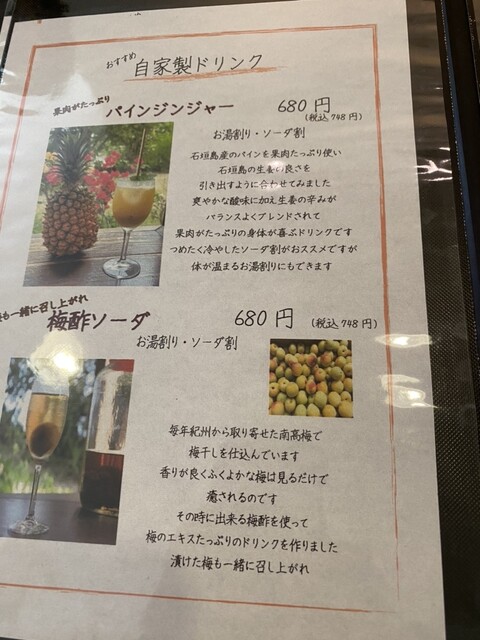 おすすめ
自家製ドリンク
果肉がたっぷり
パインジンジャー 680円
(税込748円)
お湯割り・ソーダ割
石垣島産のパインを果肉たっぷり使い
石垣島の生姜の良さを
引き出すように合わせてみました
爽やかな酸味に加え生姜の辛みが
バランスよくブレンドされて
果肉がたっぷりの身体が喜ぶドリンクです
つめたく冷やしたソーダ割がおススメですが
体が温まるお湯割りにもできます
も一緒に召し上がれ
梅酢ソーダ 680円 (税込748円)
お湯割り・ソーダ割
毎年紀州から取り寄せた南高梅で
梅干しを仕込んでいます
香りが良くふくよかな梅は見るだけで
癒されるのです
その時に出来る梅酢を使って
梅のエキスたっぷりのドリンクを作りました
漬けた梅も一緒に召し上がれ